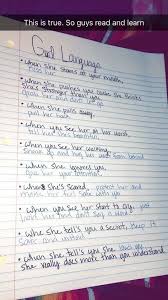 This is true. So guys read and learn
Girl Language
• when she stares at your mouth,
kiss her
• when she pushes you cause she thinks
She's stronger than you,
grab her and don't let go
• when she pulls away,
pull her back
• when you see her at her worst,
tell her she's beautiful
• when you see her walking,
sneak up and hug her waist from behind
• when she ignores you,
give her your attention
• when she's scared, protect her and
make her feel safe with you
• when you see her start to cry, just
hold her and don't say a word
• when she tell's you a secret, keep it
safe and untold
• when she tell's you she loves you
she really does more than you understand